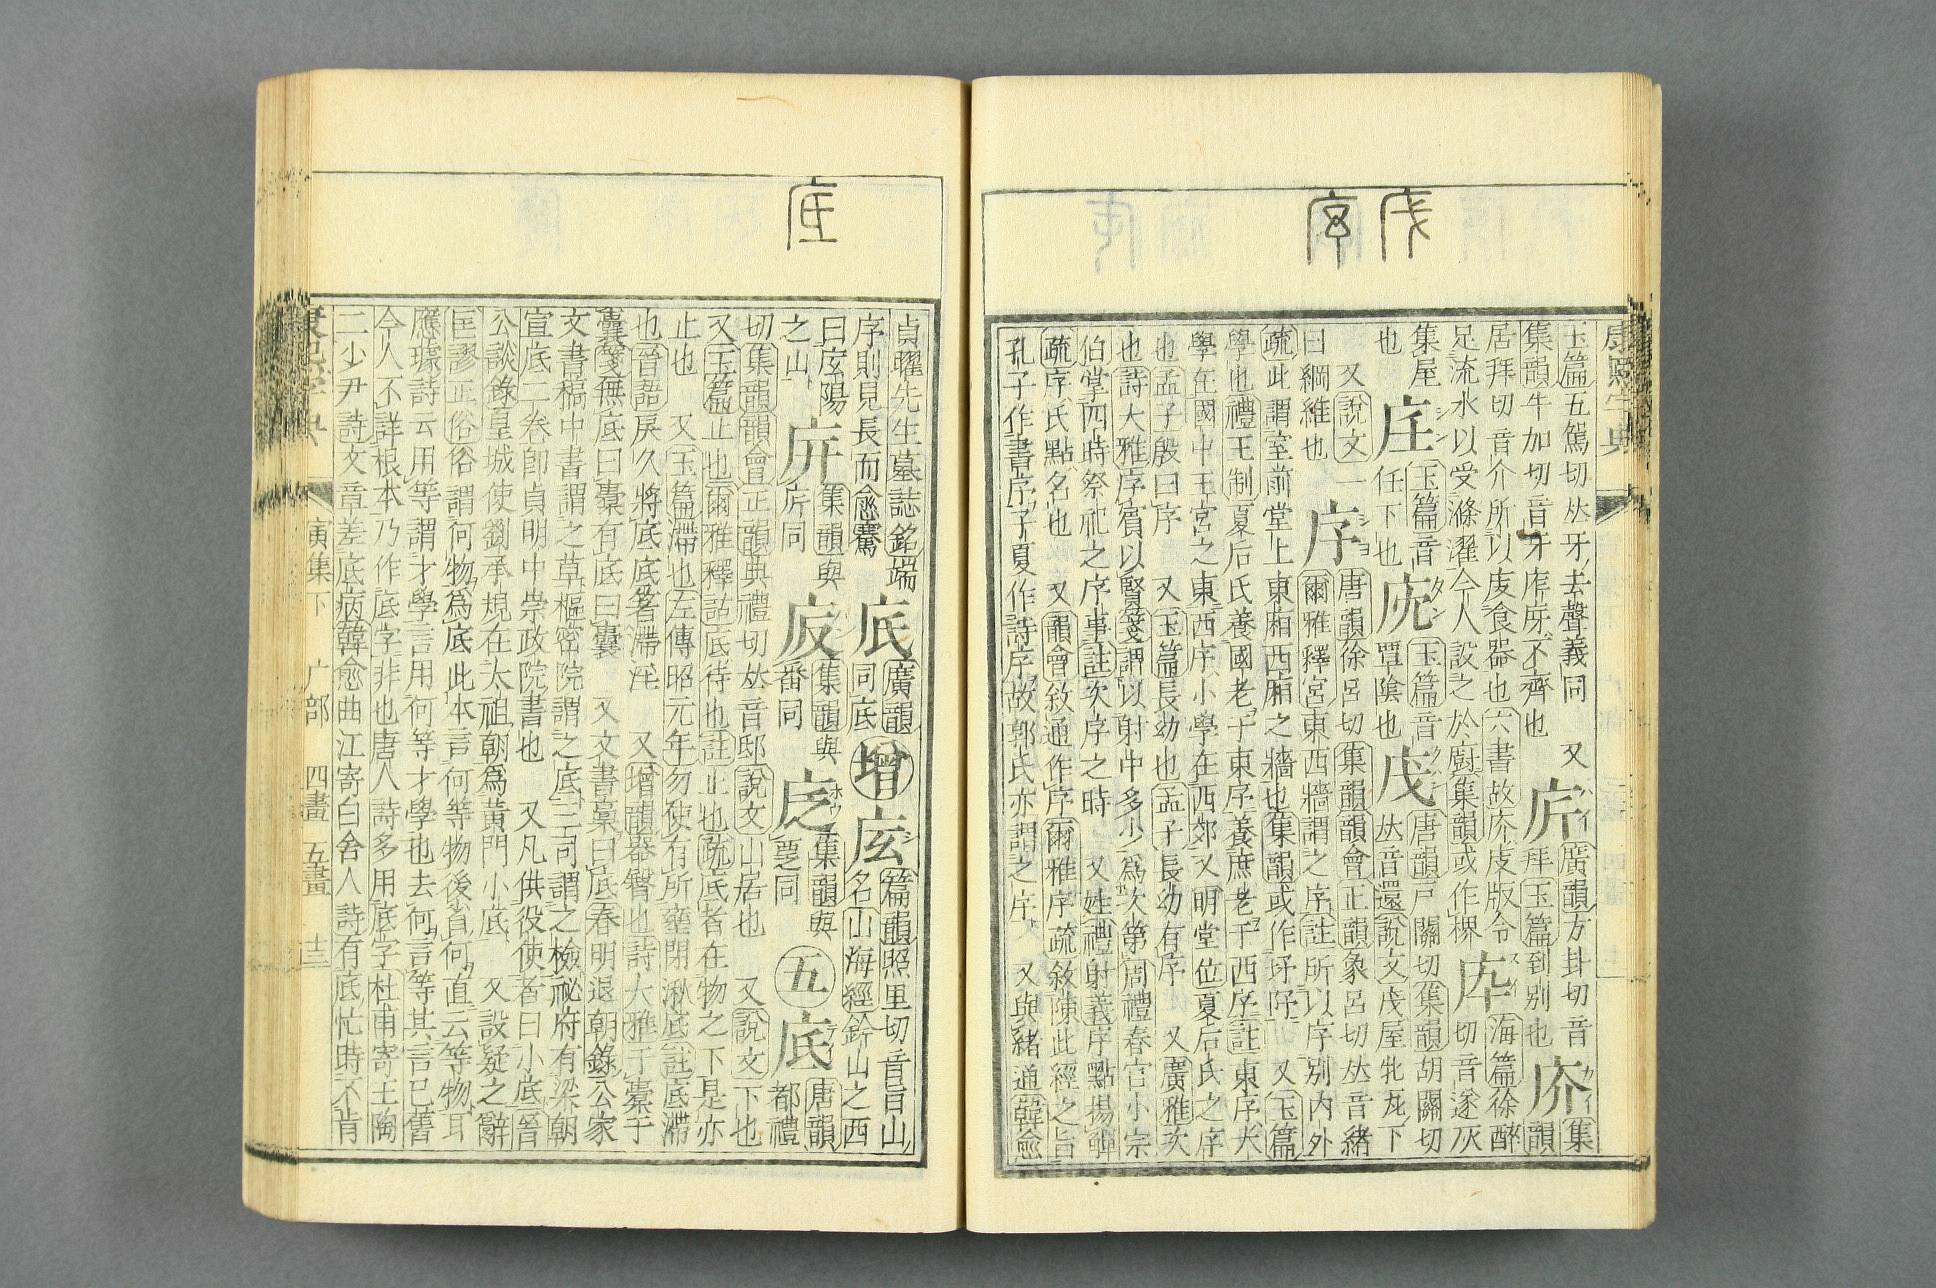 康熙字典
玉篇五駕切𠀤牙去聲義同 又𢇲廣韻方卦切音
集韻牛加切音牙庌庌不齊也 拜玉篇到別也庎集韻
居拜切音介所以庋食器也六書故庎庋版令
足流水以受滌濯今人設之於廚集韻或作𣖺
海篇徐醉切音遂灰集屋也
庄
玉篇音 任下也
庉
玉篇音 覃陰也
唐韻戸關切集韻胡關切𠀤音還說文屋牝瓦下也 又說文一曰綱維也
序
唐韻徐呂切集韻韻會正韻象呂切𠀤音緒
爾雅釋宮東西牆謂之序註所以序別內外
疏此謂室前堂上東廂西廂之牆也集韻或作㘧𨹝 又玉篇
學也禮王制夏后氏養國老于東序養庶老于西序註東序大
學在國中王宮之東西序小學在西郊又明堂位夏后氏之序
也孟子殷曰序 又玉篇長幼也孟子長幼有序 又廣雅次
也詩大雅序賓以賢箋謂以射中多少爲次第周禮春官小宗
伯掌四時祭祀之序事註次序之時 又姓禮射義序點揚觶
疏序氏點名也 又韻會敘通作序爾雅序疏敘陳此經之旨
孔子作書序子夏作詩序故郭氏亦謂之序 又與緒通韓愈
底
貞曜先生墓誌銘端
序則見長而愈騫
底
廣韻同底
增
庅
篇韻照里切音旨山
名山海經錀山之西
曰庅陽之山
集韻與庌同
集韻與番同
集韻與㲋同
五
底
唐韻都禮
切集韻韻會正韻典禮切𠀤音邸說文山居也 又說文下也
又玉篇止也爾雅釋詁底待也註止也疏底者在物之下是亦
止也 又玉篇滯也左傳昭元年勿使有所壅閉湫底註底滯
也晉語戾久將底底著滯淫 又增韻器臀也詩大雅于橐于
囊箋無底曰橐有底曰囊 又文書稾曰底春明退朝錄公家
文書稿中書謂之草樞密院謂之底三司謂之檢祕府有梁朝
宣底二卷卽貞明中崇政院書也 又凡供役使者曰小底晉
公談錄皇城使劉承規在太祖朝爲黃門小底 又設疑之辭
匡謬正俗俗謂何物爲底此本言何等物後省何直云等物耳
應璩詩云用等謂才學言用何等才學也去何言等其言已舊
今人不詳根本乃作底字非也唐人詩多用底字杜甫寄王陶
二少尹詩文章差底病韓愈曲江寄白舍人詩有底忙時不肯
康熙字典 寅集下 广部 四畫 五畫 十三